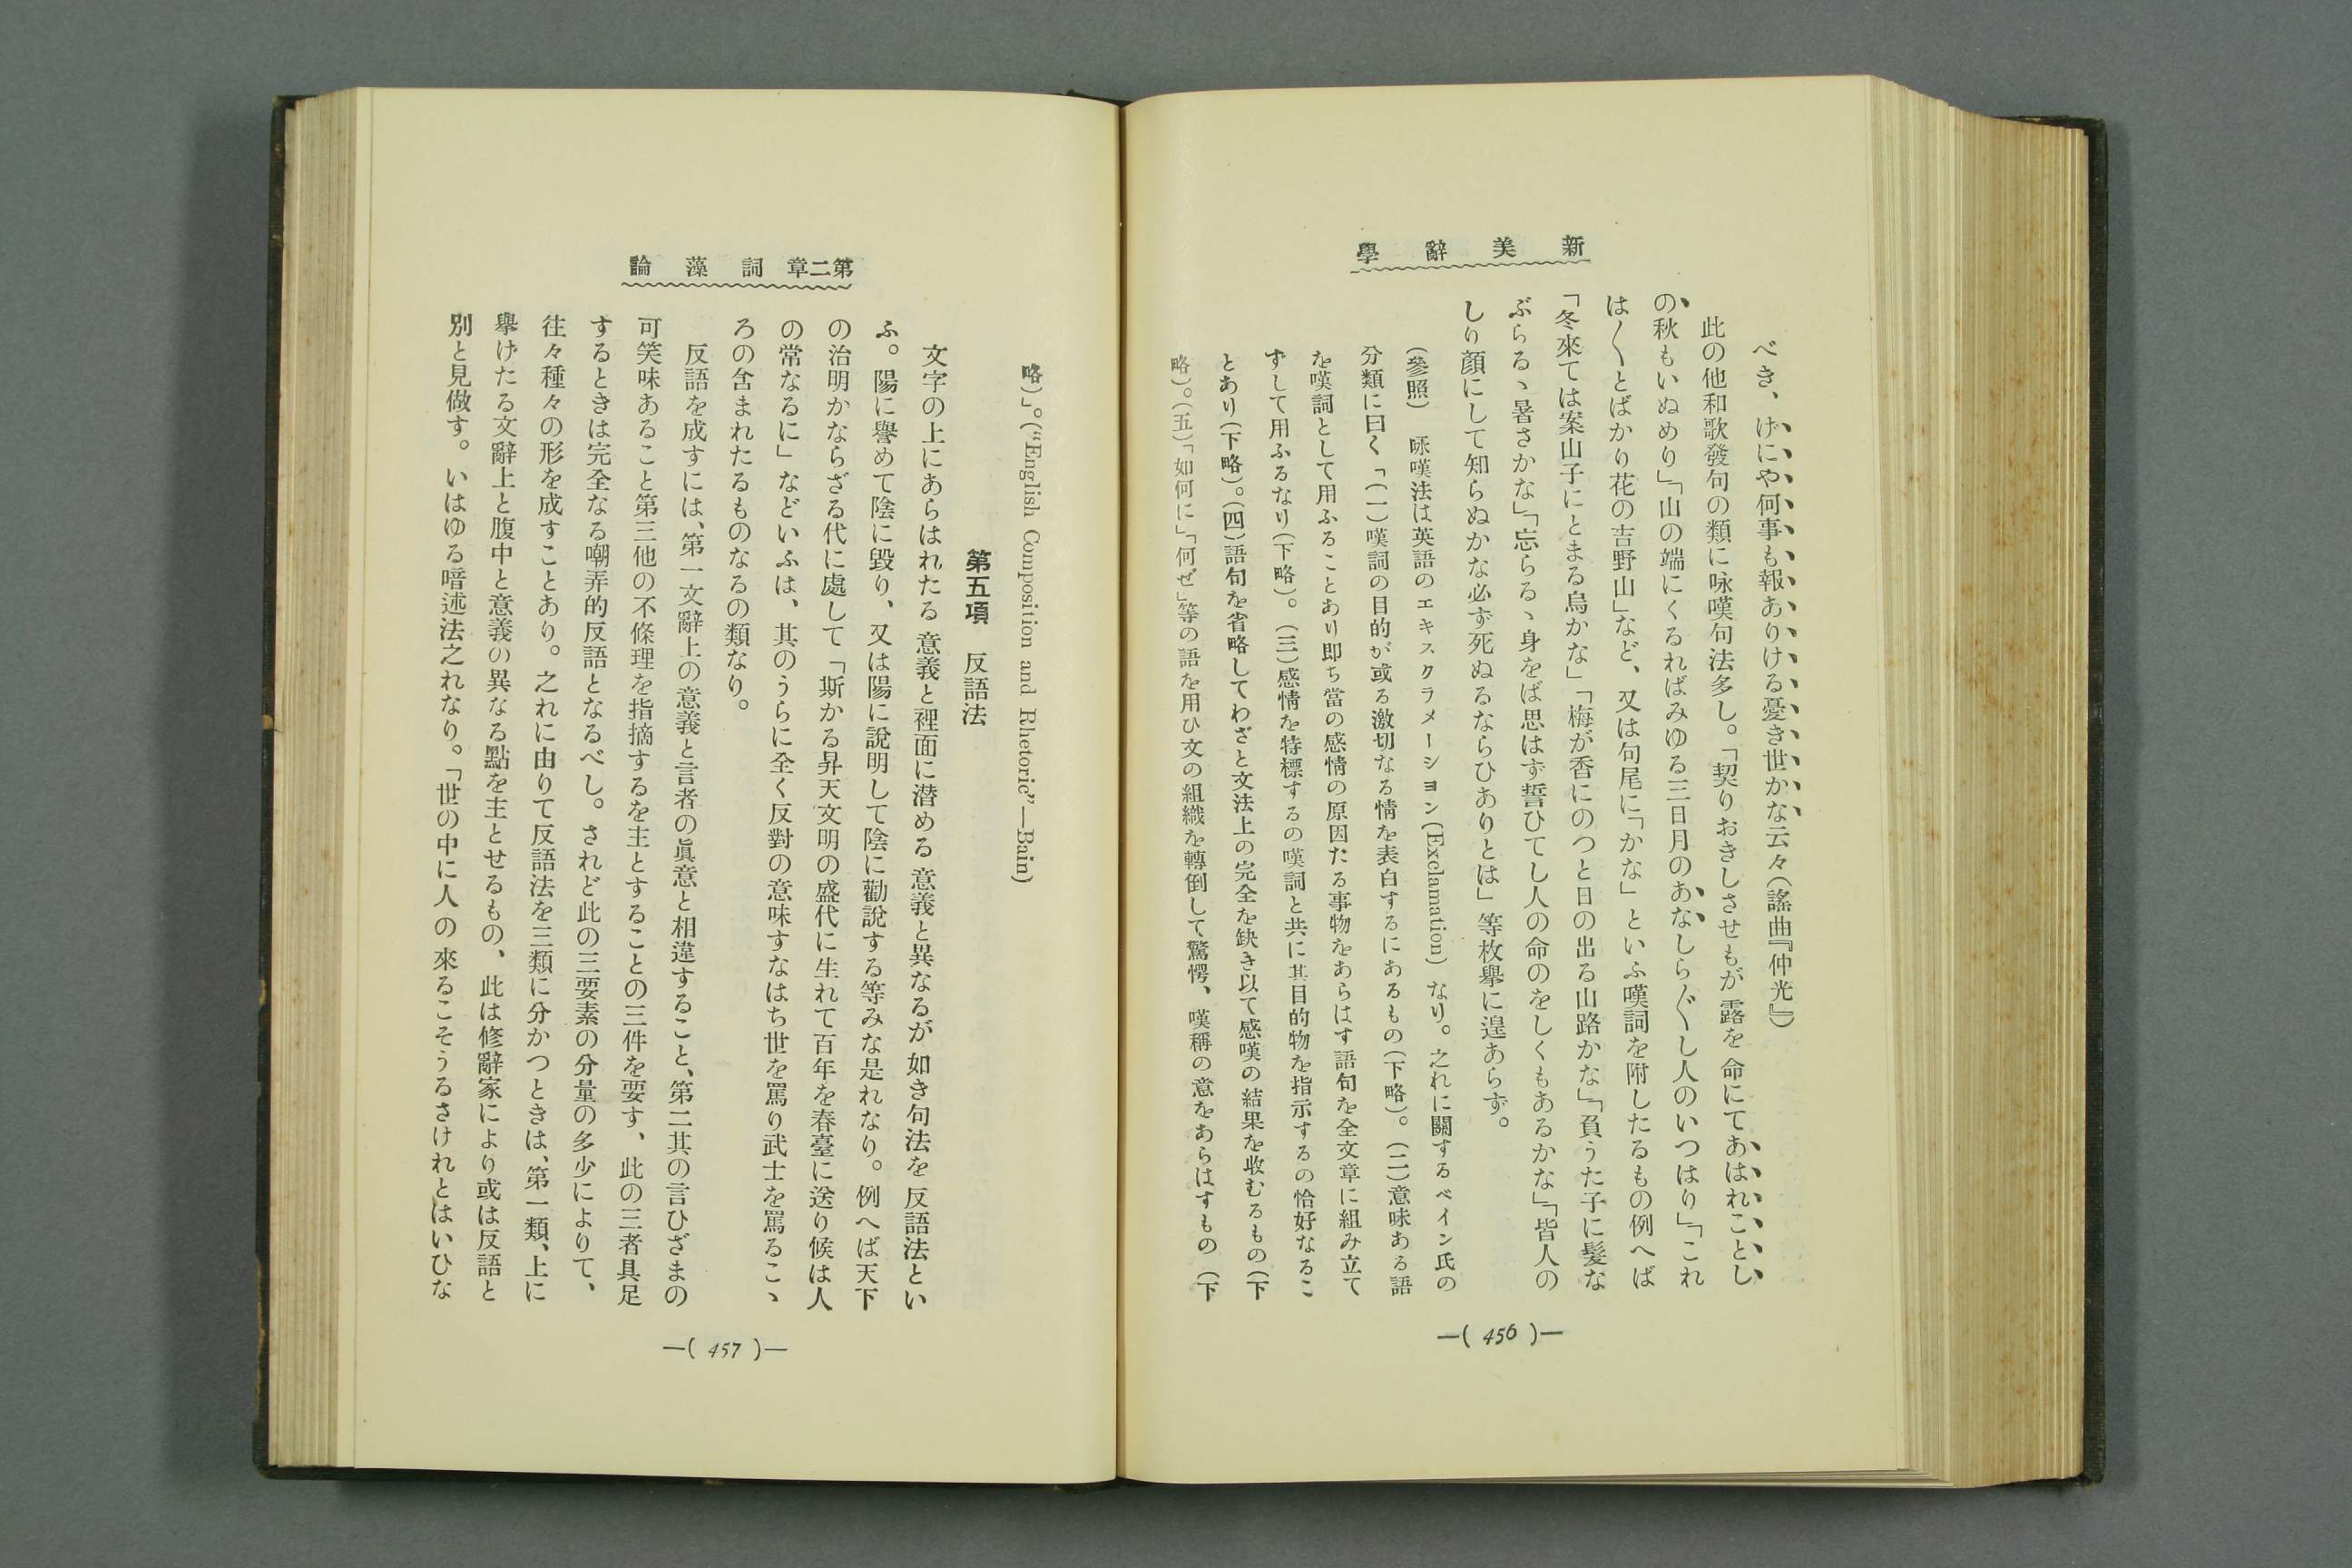 新美辭學
べき、けにや何事も報ありける憂き世かな云々(謠曲『仲光』)
此の他和歌發句の類に咏嘆句法多し。「契りおきしさせもが露を命にてあはれことし
の秋もいぬめり」「山の端にくるればみゆる三日月のあなしらじらし人のいつはり」「これ
は〳〵とばかり花の吉野山」など、又は句尾に「かな」といふ嘆詞を附したるもの例へば
「冬來ては案山子にとまる烏かな」「梅が香にのつと日の出る山路かな」「負うた子に髮な
ぶらるゝ暑さかな」「忘らるゝ身をば思はず誓ひてし人の命のをしくもあるかな」「皆人の
しり顏にして知らぬかな必ず死ぬるならひありとは」等枚擧に遑あらず。
(參照) 咏嘆法は英語のエキスクラメーシヨン(Exclamation)なり。之れに關するベイン氏の
分類に曰く「(一)嘆詞の目的が或る激切なる情を表白するにあるもの(下略)。(二)意味ある語
を嘆詞として用ふることあり即ち當の感情の原因たる事物をあらはす語句を全文章に組み立て
ずして用ふるなり(下略)。(三)感情を特標するの嘆詞と共に其目的物を指示するの恰好なるこ
とあり(下略)。(四)語句を省略してわざと文法上の完全を缺き以て感嘆の結果を收むるもの(下
略)。(五)「如何に」「何ぜ」等の語を用ひ文の組織を轉倒して驚愕、嘆稱の意をあらはすもの(下
—( 456 )—
第二章 詞藻論
略)」。(“English Composition and Rhetoric”—Bain)
第五項 反語法
文字の上にあらはれたる意義と裡面に潜める意義と異なるが如き句法を反語法とい
ふ。陽に譽めて陰に毀り、又は陽に說明して陰に勸說する等みな是れなり。例へば天下
の治明かならざる代に處して「斯かる昇天文明の盛代に生れて百年を春臺に送り候は人
の常なるに」などいふは、其のうらに全く反對の意味すなはち世を罵り武士を罵るこゝ
ろの含まれたるものなるの類なり。
反語を成すには、第一文辭上の意義と言者の眞意と相違すること、第二其の言ひざまの
可笑味あること第三他の不條理を指摘するを主とすることの三件を要す、此の三者具足
するときは完全なる嘲弄的反語となるべし。されど此の三要素の分量の多少によりて、
往々種々の形を成すことあり。之れに由りて反語法を三類に分かつときは、第一類、上に
擧げたる文辭上と腹中と意義の異なる點を主とせるもの、此は修辭家により或は反語と
別と見做す。いはゆる暗述法之れなり。「世の中に人の來るこそうるさけれとはいひな
—( 457 )—